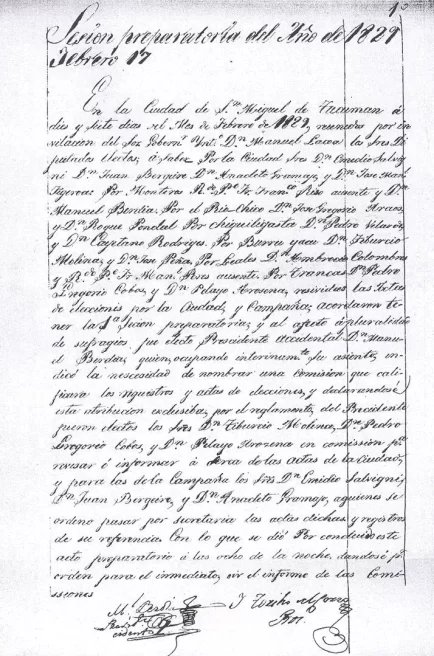 1º
Sesión preparatoria del Año de 1829
Febrero 17
En la Ciudad de Sn. Miguel de Tucuman á
dies y siete dias del Mes de Febrero de 1829, reunidos por in
vitacion del Sor. Gobernr. Intº Dn. Manuel Lacoa los Sres. Di
putados electos, á saber Por la Ciudad Sres. Dn. Emidio Salvig
ni Dn. Juan Bergeire Dn. Anacleto Gramajo, y Dn. Jose Manl.
Figueroa: Por Monteros Franco. Riso ausente y Dn.
Manuel Berdia: Por el Rio-Chico Dn. Jose Gregorio Araos,
y Dn. Roque Pondal Por chiquiligasta Dn. Pedro Velarde,
y Dn. Cayetano Rodrigez. Por Burruyacu Dn. Tiburcio
Molina, y Dn. Jose Peña, Por Leales Dn. Ambrocio Colombres
y Manl. Peres ausente. Por Trancas Dn. Pedro
Gregorio Cobos, y Dn. Pelayo Arosena, resividas las actas
de elecciones por la Ciudad, y Campaña; acordaron te
ner la preparatoria; y al efecto á pluralidad
de sufragios fue electo Presidente Accidental Dn. Manu
el Berdia; quien, ocupando interinamte. su asiento, in
dicó la nescesidad de nombrar una Comision que cali
ficara los registros y actas de elecciones, y declarandose
esta atribucion exclusiba, por el reglamento, del Presidente
fueron electos los Sres. Dn. Tiburcio Molina, Dn. Pedro
Gregorio Cobos, y Dn. Pelayo Arosena en comision pa.
revisar é informar á cerca de las actas de la Ciudad,
y para las de la Campaña los Sres. Dn. Emidio Salvigni,
Dn. Juan Bergeire, y Dn. Anacleto Gramajo, aquienes se
ordeno pasar por secretaria las actas dichas y registros
de su referencia. Con lo que se dió Por concluido este
acto preparatorio á las ocho de la noche, dandose pr.
orden para el inmediato, oir el informe de las Comi
ssiones
Ml. Berdia